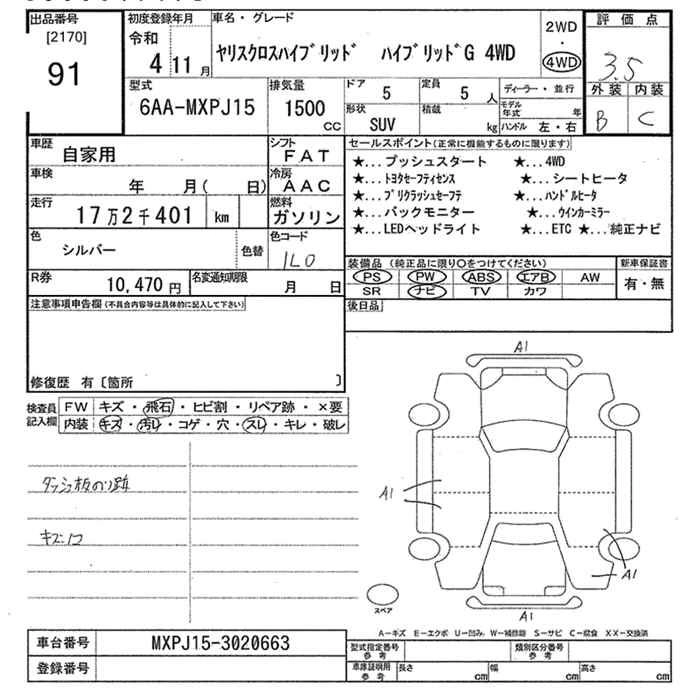 出品番号
[2170]
91
初度登録年月
令和
4 11 月
車名・グレード
ヤリスクロスハイブリッド ハイブリッドG 4WD
2WD
・
4WD
評価点
3.5
外装 内装
B C
型式
6AA-MXPJ15
排気量
1500
CC
ドア
5
定員
5 人
形状
SUV
積載
kg
ディーラー・並行
モデル年式 年
ハンドル 左・右
車歴
自家用
シフト
FAT
車検
年 月( 日)
冷房
AAC
走行
17万2千401 km
燃料
ガソリン
色
シルバー
色替
色コード
1L0
R券
10,470 円
名変通知期限
月 日
セールスポイント(正常に機能するものに限ります)
★...プッシュスタート ★...4WD
★...トヨタセーフティセンス ★...シートヒータ
★...プリクラッシュセーフテ ★...ハンドルヒータ
★...バックモニター ★...ウインカーミラー
★...LEDヘッドライト ★...ETC ★...純正ナビ
装備品(純正品に限り○をつけてください)
新車保証書
PS PW ABS エアB AW
SR ナビ TV カワ
有・無
後日品
注意事項申告欄(不具合内容等は具体的に記入して下さい)
修復歴 有〔箇所 〕
検査員記入欄
FW キズ・飛石・ヒビ割・リペア跡・×要
内装 キズ・汚れ・コゲ・穴・スレ・キレ・破レ
ダッシュ板のり跡
キズ凹
A1
A1
A1
A1
スペア
A-キズ E-エクボ U-凹み W-補修跡 S-サビ C-腐食 XX-交換済
車台番号
MXPJ15-3020663
登録番号
型式指定番号
参考
類別区分番号
参考
車庫証明用
参考
長さ cm
幅 cm
高さ cm